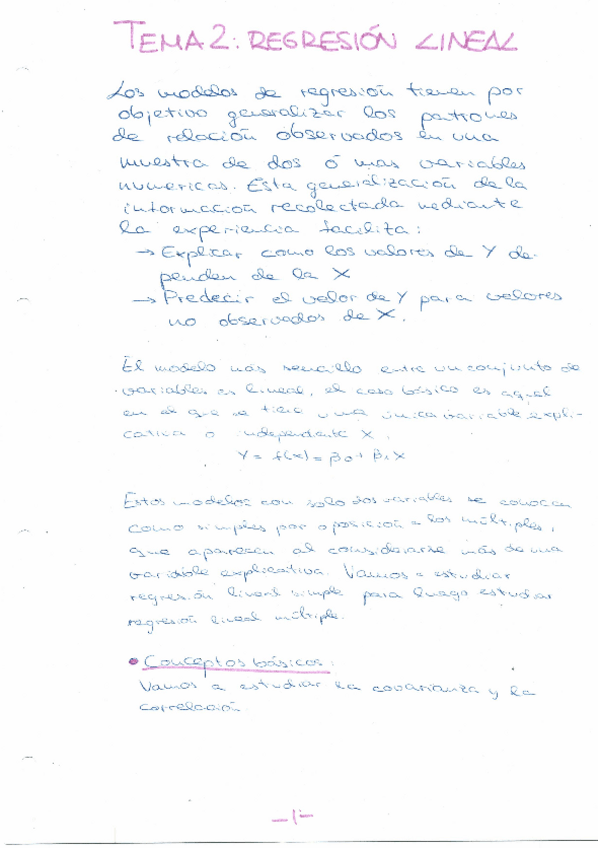 TEMA 2: REGRESIÓN LINEAL
Los modelos de regresión tienen por
objetivo generalizar los patrones
de relación observados en una
muestra de dos ó mas variables
numericas. Esta generalización de la
información recolectada mediante
la experiencia facilita:
→ Explicar como los valores de Y de-
penden de la X
→ Predecir el valor de Y para valores
no observados de X.
El modelo más sencillo entre un conjunto de
variables es lineal, el caso básico es aquel
en el que se tiene una única variable expli-
cativa o independiente X.
Y = f(x) = β0 + β1 X
Estos modelos con solo dos variables se conocen
como simples por oposición a los múltiples,
que aparecen al considerarse más de una
variable explicativa. Vamos a estudiar
regresión lineal simple para luego estudiar
regresión lineal múltiple.
• Conceptos básicos:
Vamos a estudiar la covarianza y la
correlación.
-1-